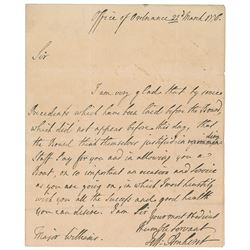 Office of Ordnance 21st March 1776.
Sir
I am very glad that by some
Precedents which have been laid before the Board,
which did not appear before this day, that
the Board think themselves justified in
Staff Pay for you and in allowing you a
on so important an and Service
as you are going on, in which I most heartily
wish you all the success and good health
you can desire. I am Sir
Your most Obedient
Humble Servant
Jeff: Amherst
Major Williams